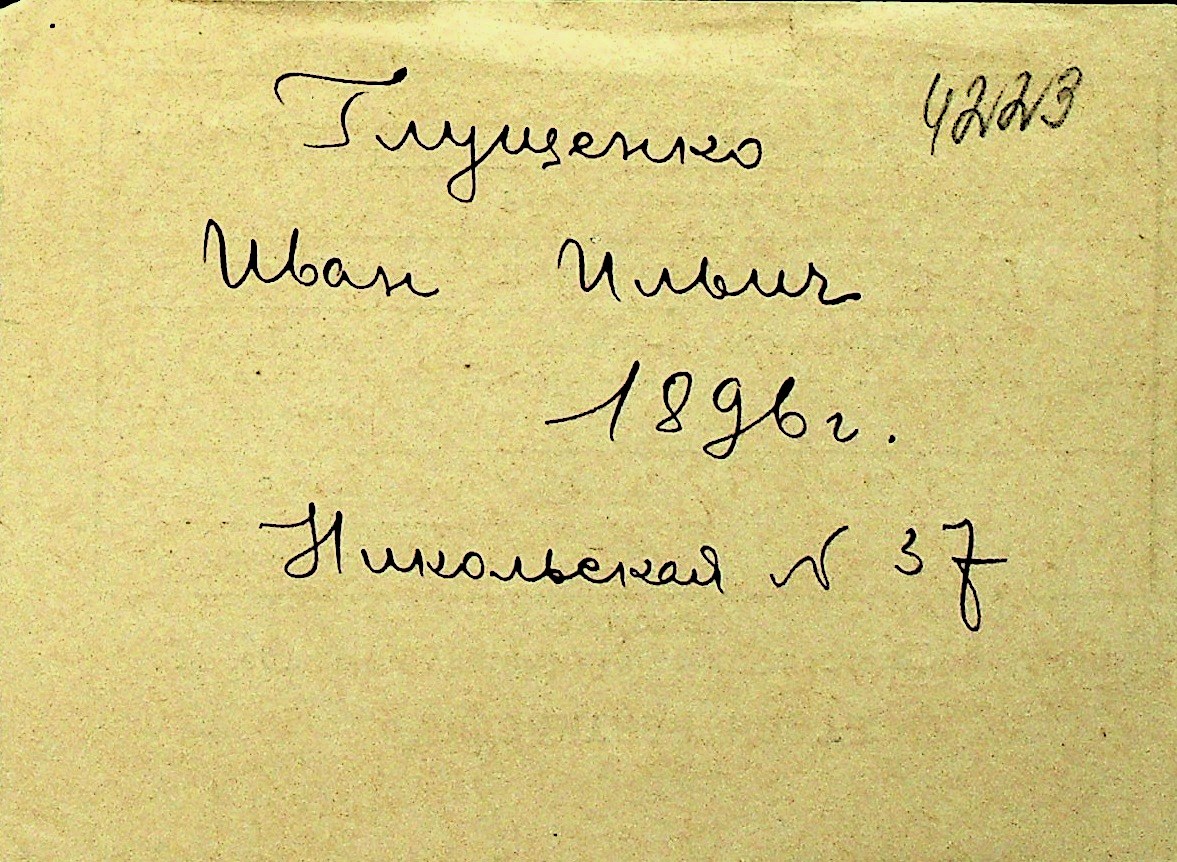 Глущенко 42223
Иван Ильич
1896г.
Никольская N 37